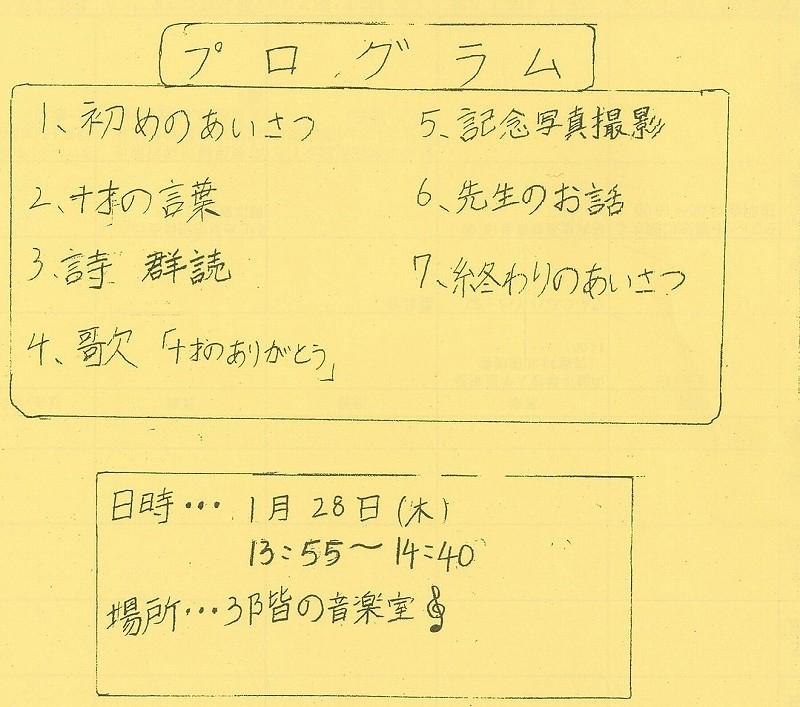 プログラム
1、初めのあいさつ
2、十才の言葉
3、詩 群読
4、歌「十才のありがとう」
5、記念写真撮影
6、先生のお話
7、終わりのあいさつ
日時・・・1月28日(木)
13:55〜14:40
場所・・・3階の音楽室